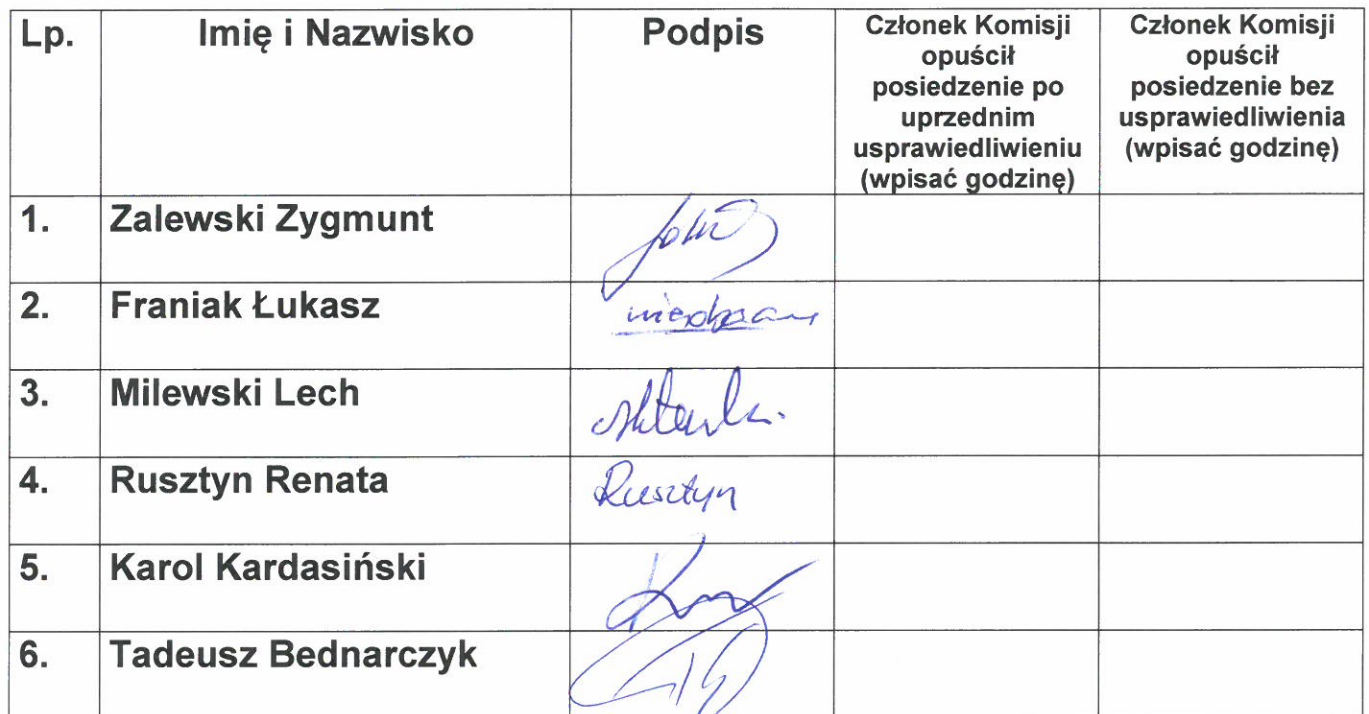 Lp.
Imię i Nazwisko
Podpis
Członek Komisji
opuścił
posiedzenie po
uprzednim
usprawiedliwieniu
(wpisać godzinę)
Członek Komisji
opuścił
posiedzenie bez
usprawiedliwienia
(wpisać godzinę)
1. Zalewski Zygmunt
2. Franiak Łukasz
3. Milewski Lech
4. Rusztyn Renata Rusztyn
5. Karol Kardasiński
6. Tadeusz Bednarczyk